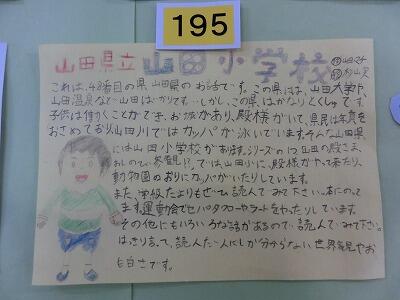 195
山田県立 山田小学校
これは、48番目の県 山田県のお話です。この県には、山田大学や
山田温泉など山田ばかりです。しかし、この県はかなりとくしゅで、
子供は働くことができ、お城があり、殿様がいて、県民は年貢を
おさめており、山田川ではカッパが泳いでいます。そんな山田県
には山田小学校があります。シリーズの1つ山田の殿さま、
おしのび参観!?では、山田小に、殿様がやって来たり、
動物園のおりにカッパがいたりしています。
また、学級だよりもぜひ読んでみて下さい。本にのって
ます。運動会でセパタクローやラートをやったりしています。
その他にもいろいろな話があるので、読んでみて下さい。
はっきり言って、読んだ人にしか分からない世界見やお
も白さです。